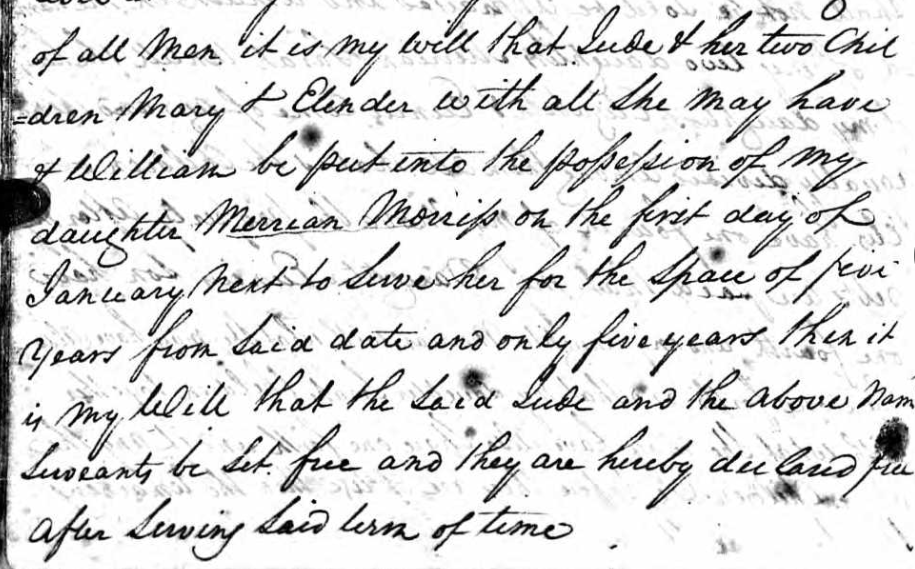 of all men it is my will that Jude & her two Chil
=dren Mary & Elender with all she may have
& William be put into the possession of my
daughter Merrean Morriss on the first day of
January next to serve her for the space of five
years from said date and only five years then it
is my Will that the said Jude and the above Nam
Serveants be set free and they are hereby declared free
after serving said term of time